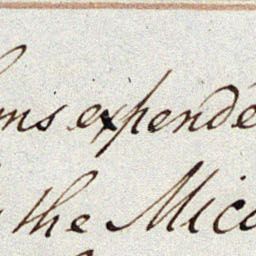 expende
the Mico